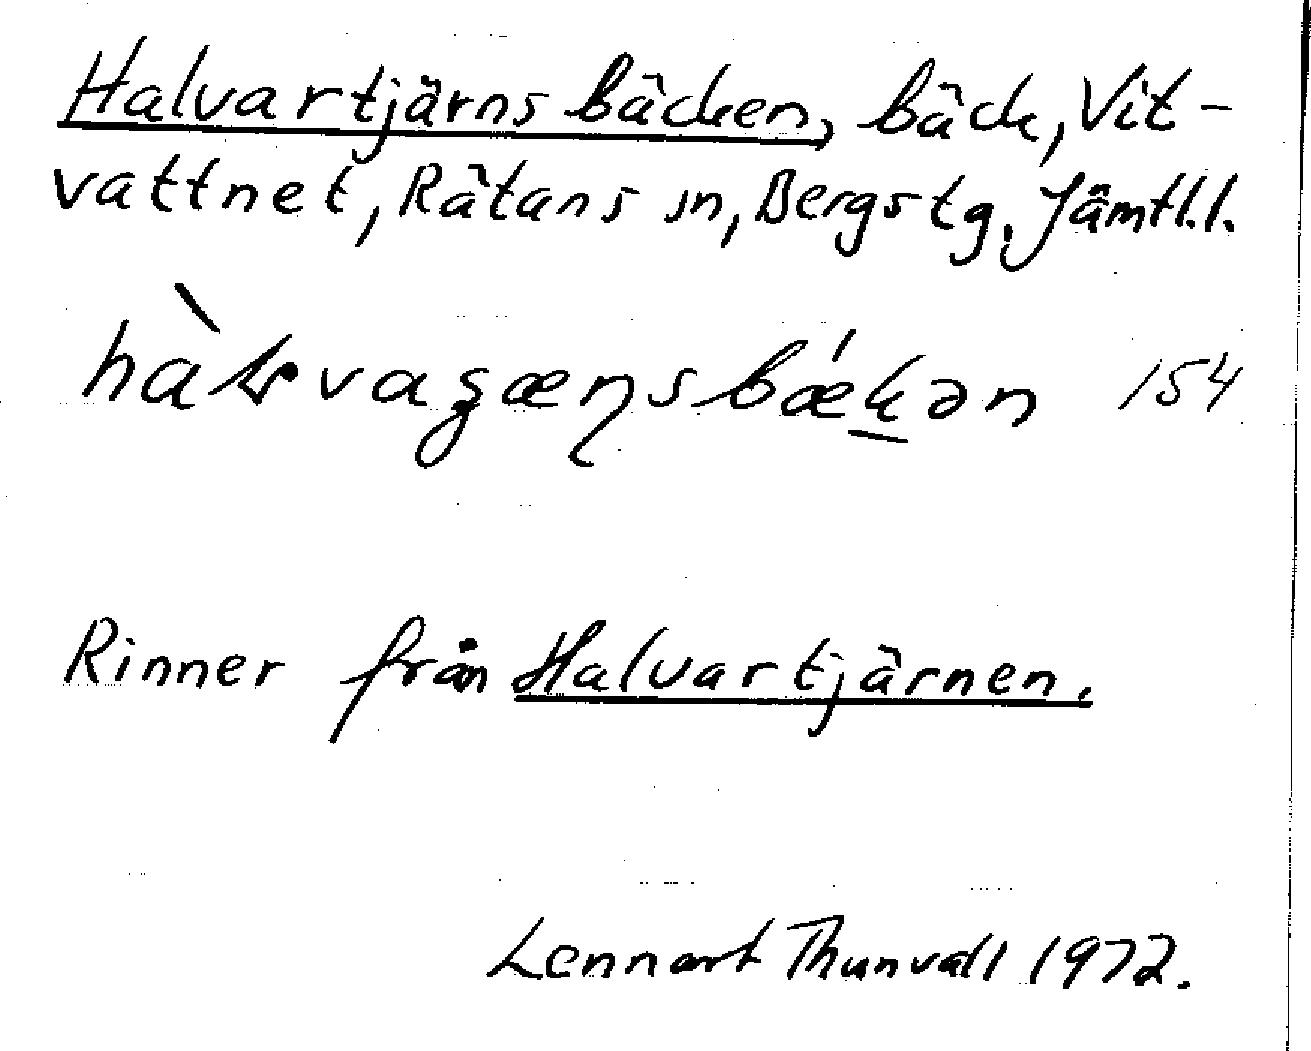 Halvartjärnsbäcken, bäck, Vit-
vattnet, Rätans sn, Bergs tg, Jämtl.l.
154
Rinner från Halvartjärnen.
Lennart Thunvall 1972.